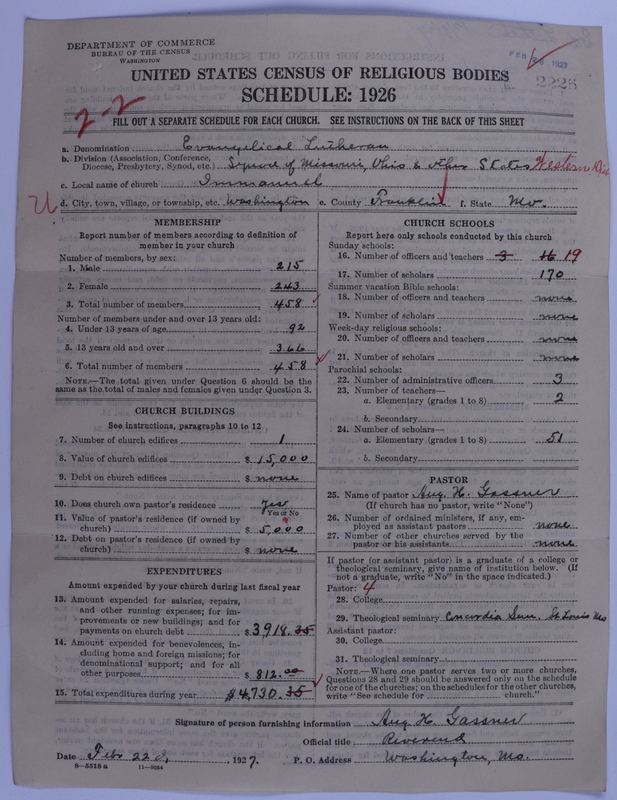 DEPARTMENT OF COMMERCE
BUREAU OF THE CENSUS
WASHINGTON
FEB 26 1927
2226
UNITED STATES CENSUS OF RELIGIOUS BODIES
SCHEDULE: 1926
2-2
FILL OUT A SEPARATE SCHEDULE FOR EACH CHURCH. SEE INSTRUCTIONS ON THE BACK OF THIS SHEET
a. Denomination Evangelical Lutheran
b. Division (Association, Conference, Diocese, Presbytery, Synod, etc.) Synod of Missouri, Ohio & other States Western Dis
c. Local name of church Immanuel
d. City, town, village, or township, etc. Washington e. County Franklin f. State Mo.
MEMBERSHIP
Report number of members according to definition of
member in your church
Number of members, by sex:
1. Male 215
2. Female 243
3. Total number of members 458
Number of members under and over 13 years old:
4. Under 13 years of age 92
5. 13 years old and over 366
6. Total number of members 458
NOTE.—The total given under Question 6 should be the
same as the total of males and females given under Question 3.
CHURCH BUILDINGS
See instructions, paragraphs 10 to 12
7. Number of church edifices 1
8. Value of church edifices $ 15,000
9. Debt on church edifices $ none
10. Does church own pastor's residence yes
Yes or No
11. Value of pastor's residence (if owned by
church) $ 5,000
12. Debt on pastor's residence (if owned by
church) $ none
EXPENDITURES
Amount expended by your church during last fiscal year
13. Amount expended for salaries, repairs,
and other running expenses; for im-
provements or new buildings; and for
payments on church debt $ 3918.35
14. Amount expended for benevolences, in-
cluding home and foreign missions; for
denominational support; and for all
other purposes $ 812.00
15. Total expenditures during year $4,730.35
CHURCH SCHOOLS
Report here only schools conducted by this church
Sunday schools:
16. Number of officers and teachers 3 16 19
17. Number of scholars 170
Summer vacation Bible schools:
18. Number of officers and teachers none
19. Number of scholars none
Week-day religious schools:
20. Number of officers and teachers none
21. Number of scholars none
Parochial schools:
22. Number of administrative officers 3
23. Number of teachers—
a. Elementary (grades 1 to 8) 2
b. Secondary
24. Number of scholars—
a. Elementary (grades 1 to 8) 51
b. Secondary
PASTOR
25. Name of pastor Aug. H. Gassner
(If church has no pastor, write "None")
26. Number of ordained ministers, if any, em-
ployed as assistant pastors none
27. Number of other churches served by the
pastor or his assistants none
If pastor (or assistant pastor) is a graduate of a college or
theological seminary, give name of institution below. (If
not a graduate, write "No" in the space indicated.)
Pastor: 4
28. College
29. Theological seminary Concordia Sem. St. Louis Mo
Assistant pastor:
30. College
31. Theological seminary
NOTE.—Where one pastor serves two or more churches,
Questions 28 and 29 should be answered only on the schedule
for one of the churches; on the schedules for the other churches,
write "See schedule for church."
Signature of person furnishing information Aug H. Gassner
Official title Reverend
Date Feb 22d, 1927. P. O. Address Washington, Mo.
8—5518a 11—9284